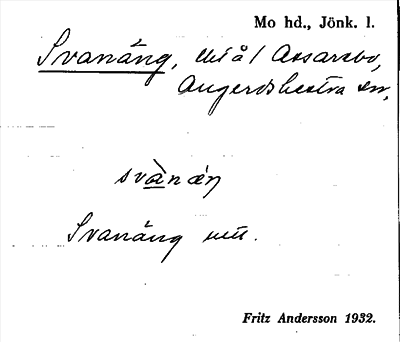 Mo hd., Jönk. l.
Svanäng, å Assarebo,
Angerdshestra sn,
svànǽŋ
Svanäng
Fritz Andersson 1932.